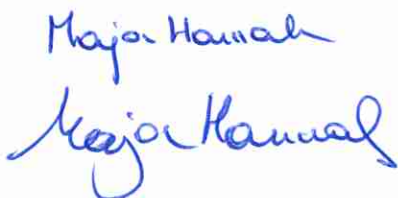 Maja Hannah
Maja Hannah